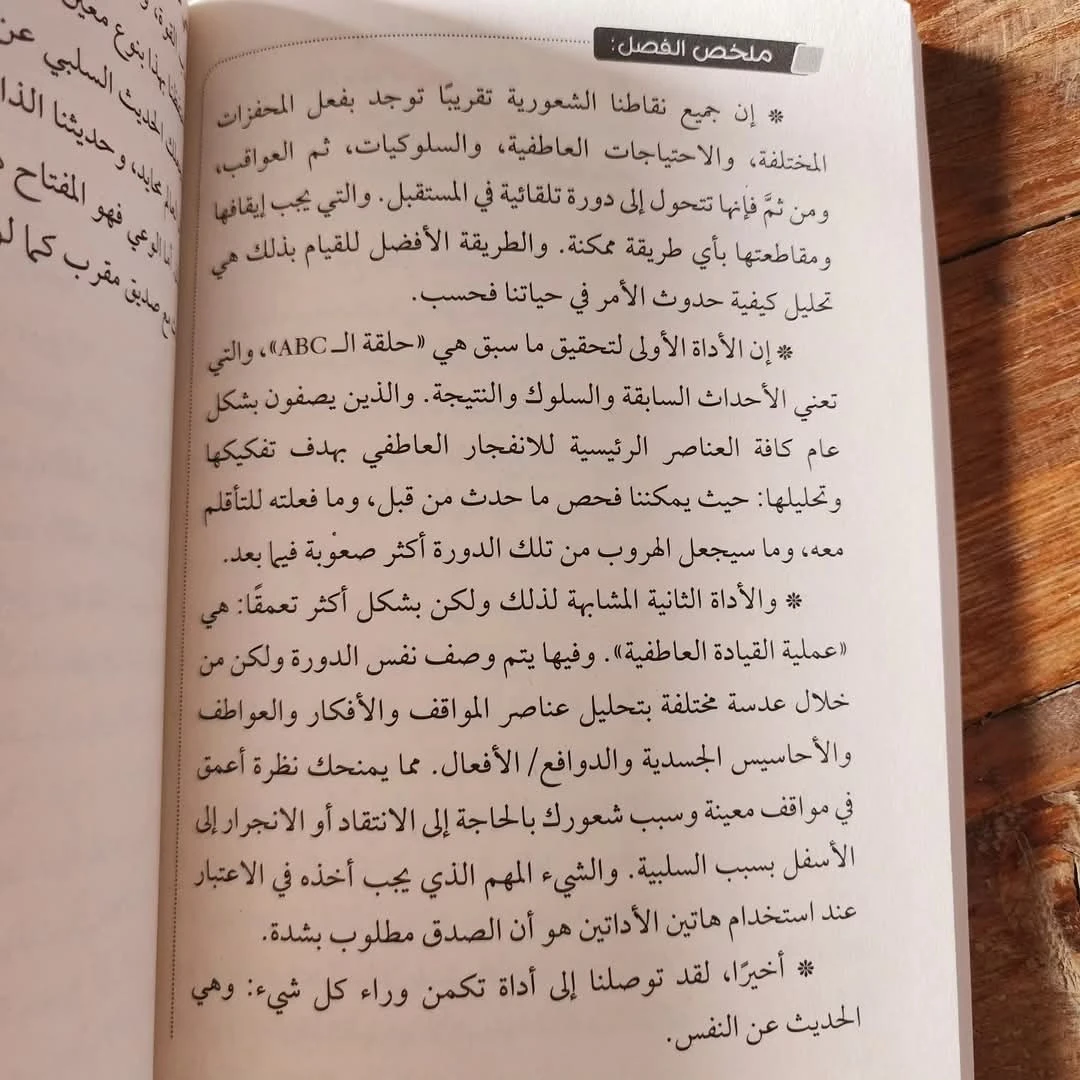 ملخص الفصل:
* إن جميع نقاطنا الشعورية تقريبًا توجد بفعل المحفزات
المختلفة، والاحتياجات العاطفية، والسلوكيات، ثم العواقب،
ومن ثمَّ فإنها تتحول إلى دورة تلقائية في المستقبل. والتي يجب إيقافها
ومقاطعتها بأي طريقة ممكنة. والطريقة الأفضل للقيام بذلك هي
تحليل كيفية حدوث الأمر في حياتنا فحسب.
* إن الأداة الأولى لتحقيق ما سبق هي «حلقة الـ ABC»، والتي
تعني الأحداث السابقة والسلوك والنتيجة. والذين يصفون بشكل
عام كافة العناصر الرئيسية للانفجار العاطفي بهدف تفكيكها
وتحليلها: حيث يمكننا فحص ما حدث من قبل، وما فعلته للتأقلم
معه، وما سيجعل الهروب من تلك الدورة أكثر صعوبة فيما بعد.
* والأداة الثانية المشابهة لذلك ولكن بشكل أكثر تعمقًا: هي
«عملية القيادة العاطفية». وفيها يتم وصف نفس الدورة ولكن من
خلال عدسة مختلفة بتحليل عناصر المواقف والأفكار والعواطف
والأحاسيس الجسدية والدوافع/ الأفعال. مما يمنحك نظرة أعمق
في مواقف معينة وسبب شعورك بالحاجة إلى الانتقاد أو الانجرار إلى
الأسفل بسبب السلبية. والشيء المهم الذي يجب أخذه في الاعتبار
عند استخدام هاتين الأداتين هو أن الصدق مطلوب بشدة.
* أخيرًا، لقد توصلنا إلى أداة تكمن وراء كل شيء: وهي
الحديث عن النفس.
القوة، و
بهذا بنوع معين
الحديث السلبي عن
وحديثنا
الوعي فهو المفتاح
مع صديق مقرب كما